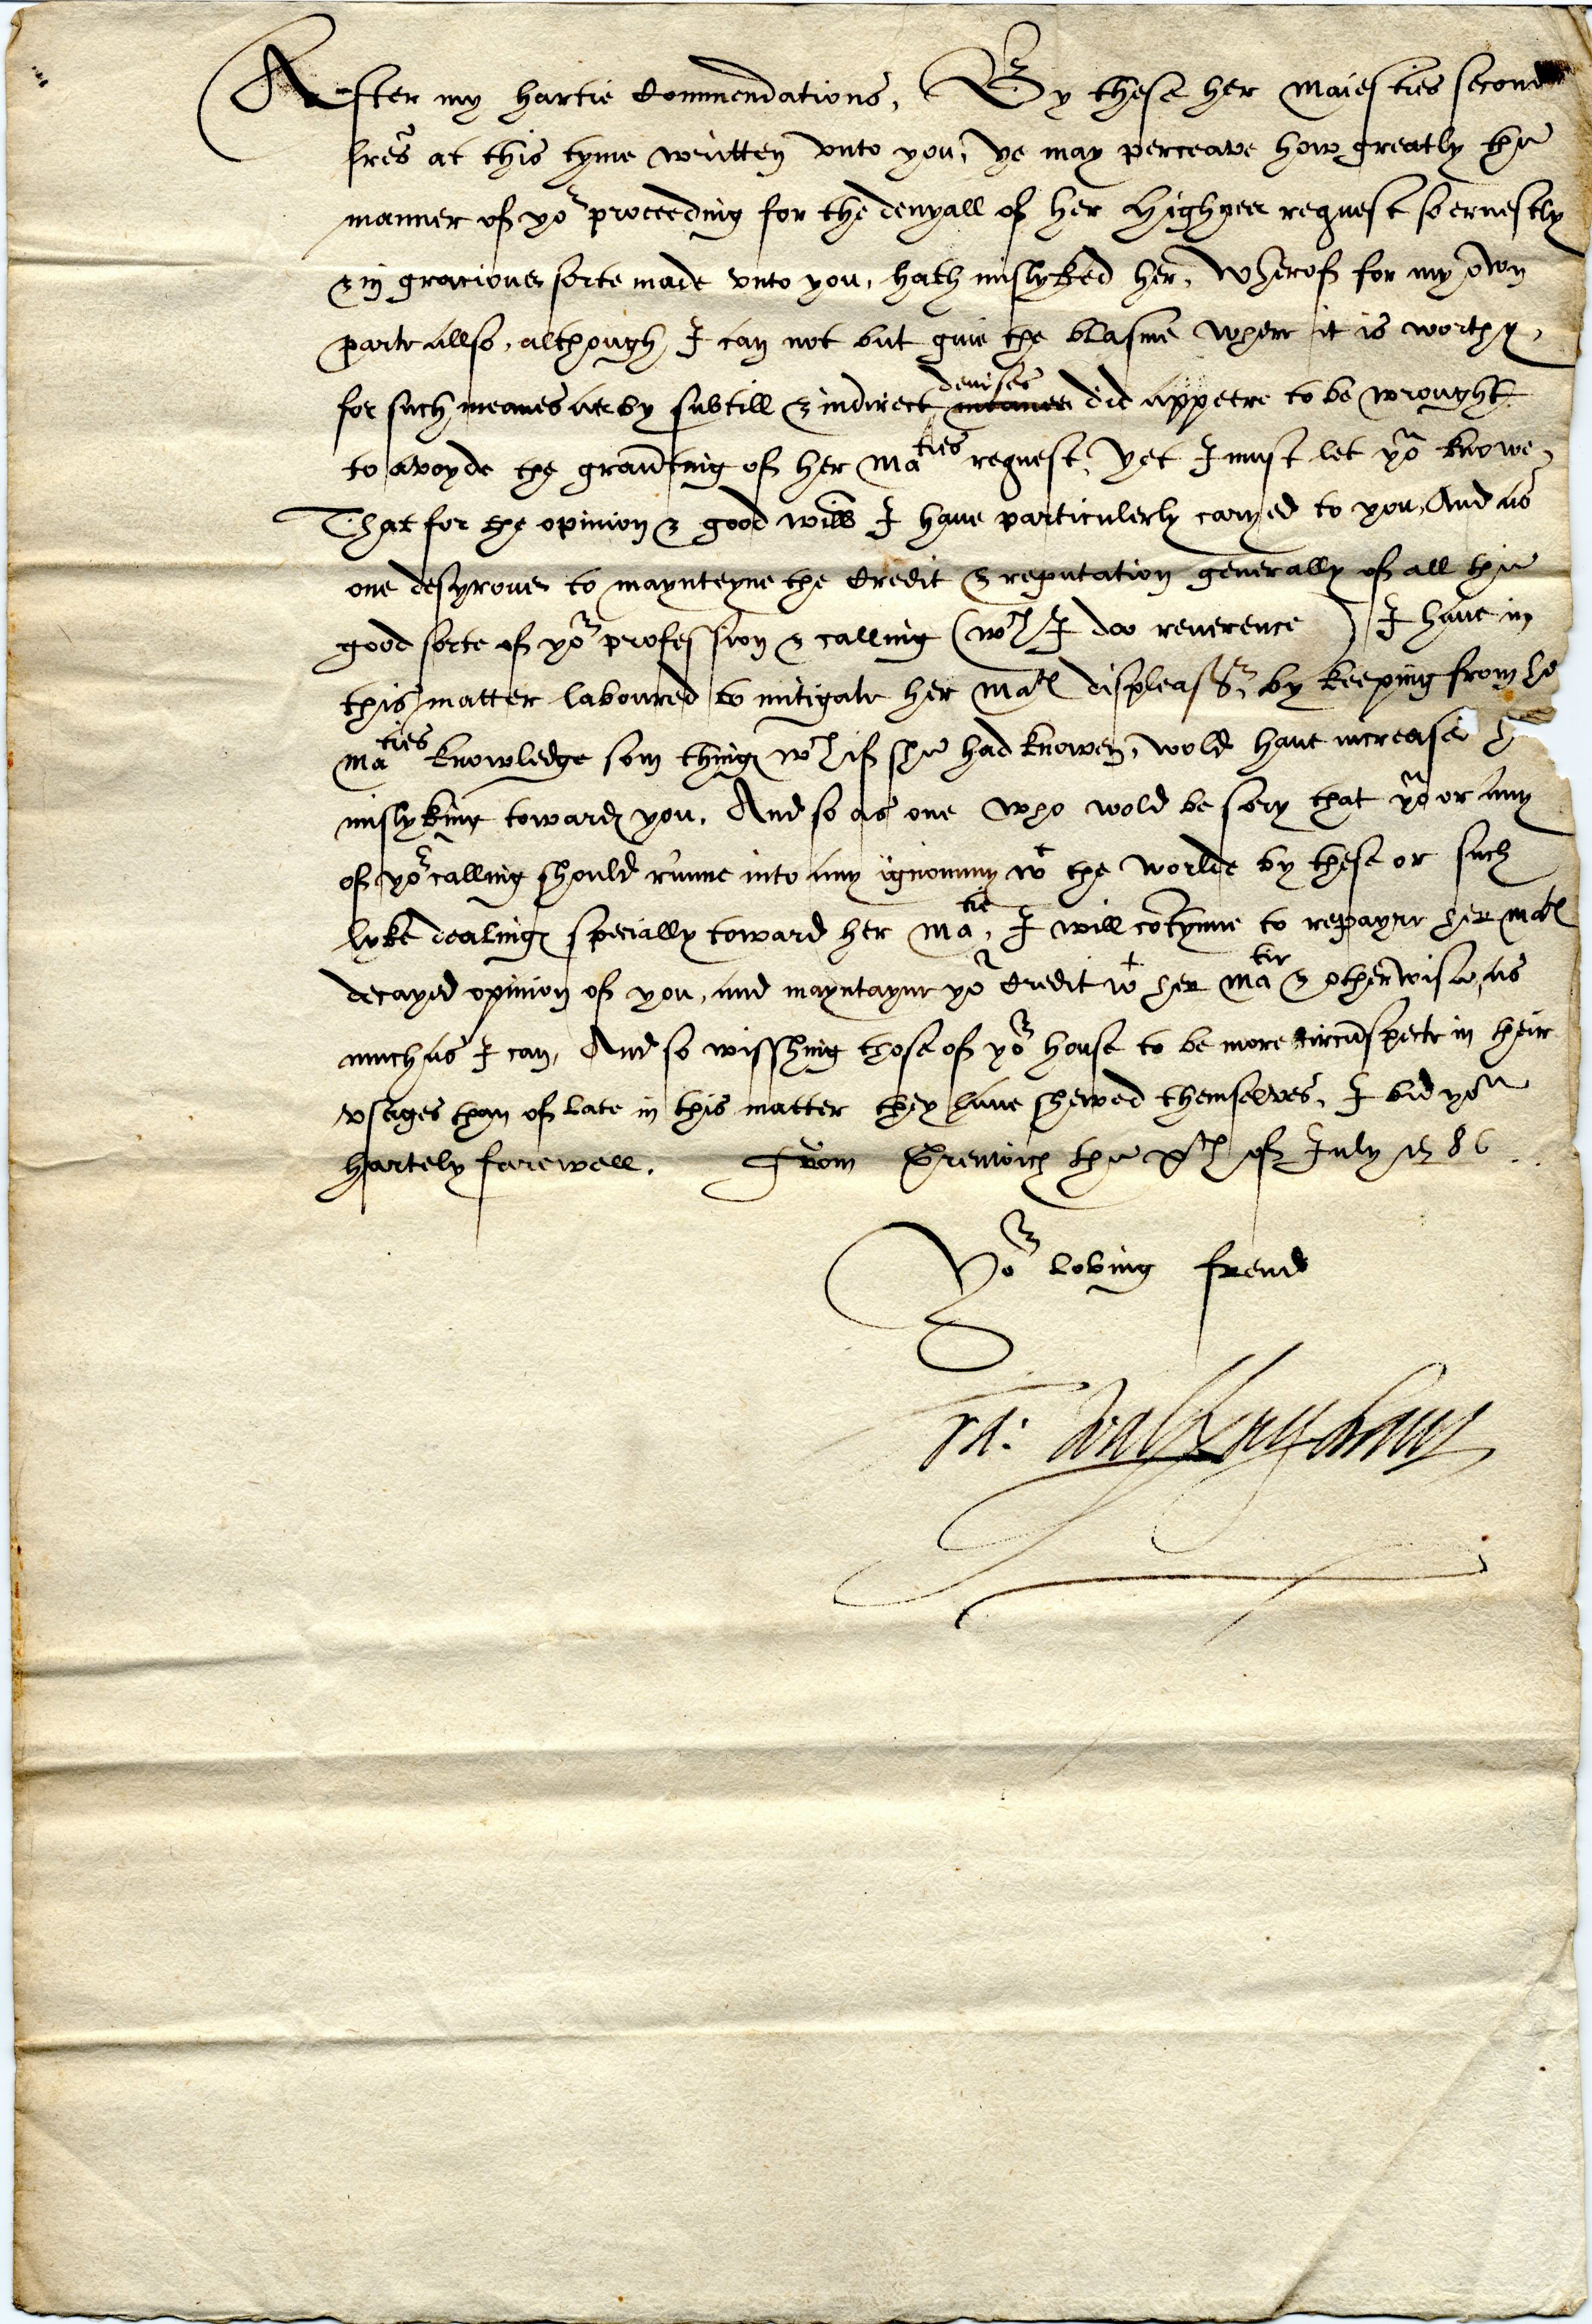 After my hartie Commendations, By these her Maiesties second
lres at this tyme written vnto you, ye may perceave how greatly the
manner of yor proceeding for the denyall of her Highnes request so ernestly
& in gracious sorte made vnto you, hath mislyked her, Wherof for my own
parte allso, although I can not but giue the blasme where it is worthy,
for such meanes as by subtill & indirect meanes devises did appeere to be wrought
to avoyde the graunting of her Maties request, Yet I must let you knowe,
That for the opinion & good will I haue particulerly caryed to you, And as
one desyrous to maynteyne the Credit & reputation generally of all the
good sorte of yor profession & calling (wch I doo reuerence) I haue in
this matter laboured to mitigate her Mats displeasr, by keeping from
Maties knowledge som things wch if she had knowen, wold haue increased
mislyking towards you. And so as one who wold be sory that you or any
of yor calling should runne into any ignominy wt the worlde by these or such
lyke dealings specially toward her Matie, I will cotynue to repayre her Mats
decayed opinion of you, and mayntayne yor Credit wt her Matie & otherwise, as
much as I can, And so wisshing those of yor house to be more circumspecte in their
vsages than of late in this matter they haue shewed themselves, I bid you
hartely farewell. From Grenwich the xth of July 1586.
Yor loving frend
Fra: Walsyngham